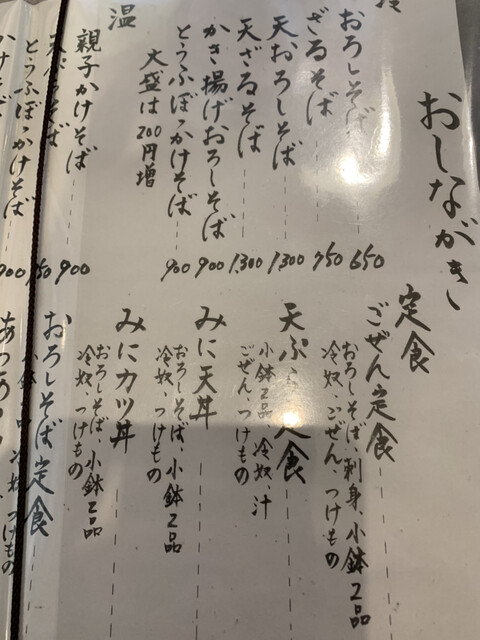 おしながき
冷
おろしそば 650
ざるそば 750
天おろしそば 1300
天ざるそば 1300
かき揚げおろしそば 900
とうふぼっかけそば 900
大盛は200円増
温
親子かけそば 900
天ぷらそば
とうふぼっかけそば 900
かけそば
定食
ごぜん定食
おろしそば、刺身 小鉢2品
冷奴、ごぜん、つけもの
天ぷら定食
小鉢2品 冷奴 汁
ごぜん、つけもの
みに天丼
おろしそば、小鉢2品
冷奴、つけもの
みにカツ丼
おろしそば、小鉢2品
冷奴、つけもの
おろしそば定食
つけもの